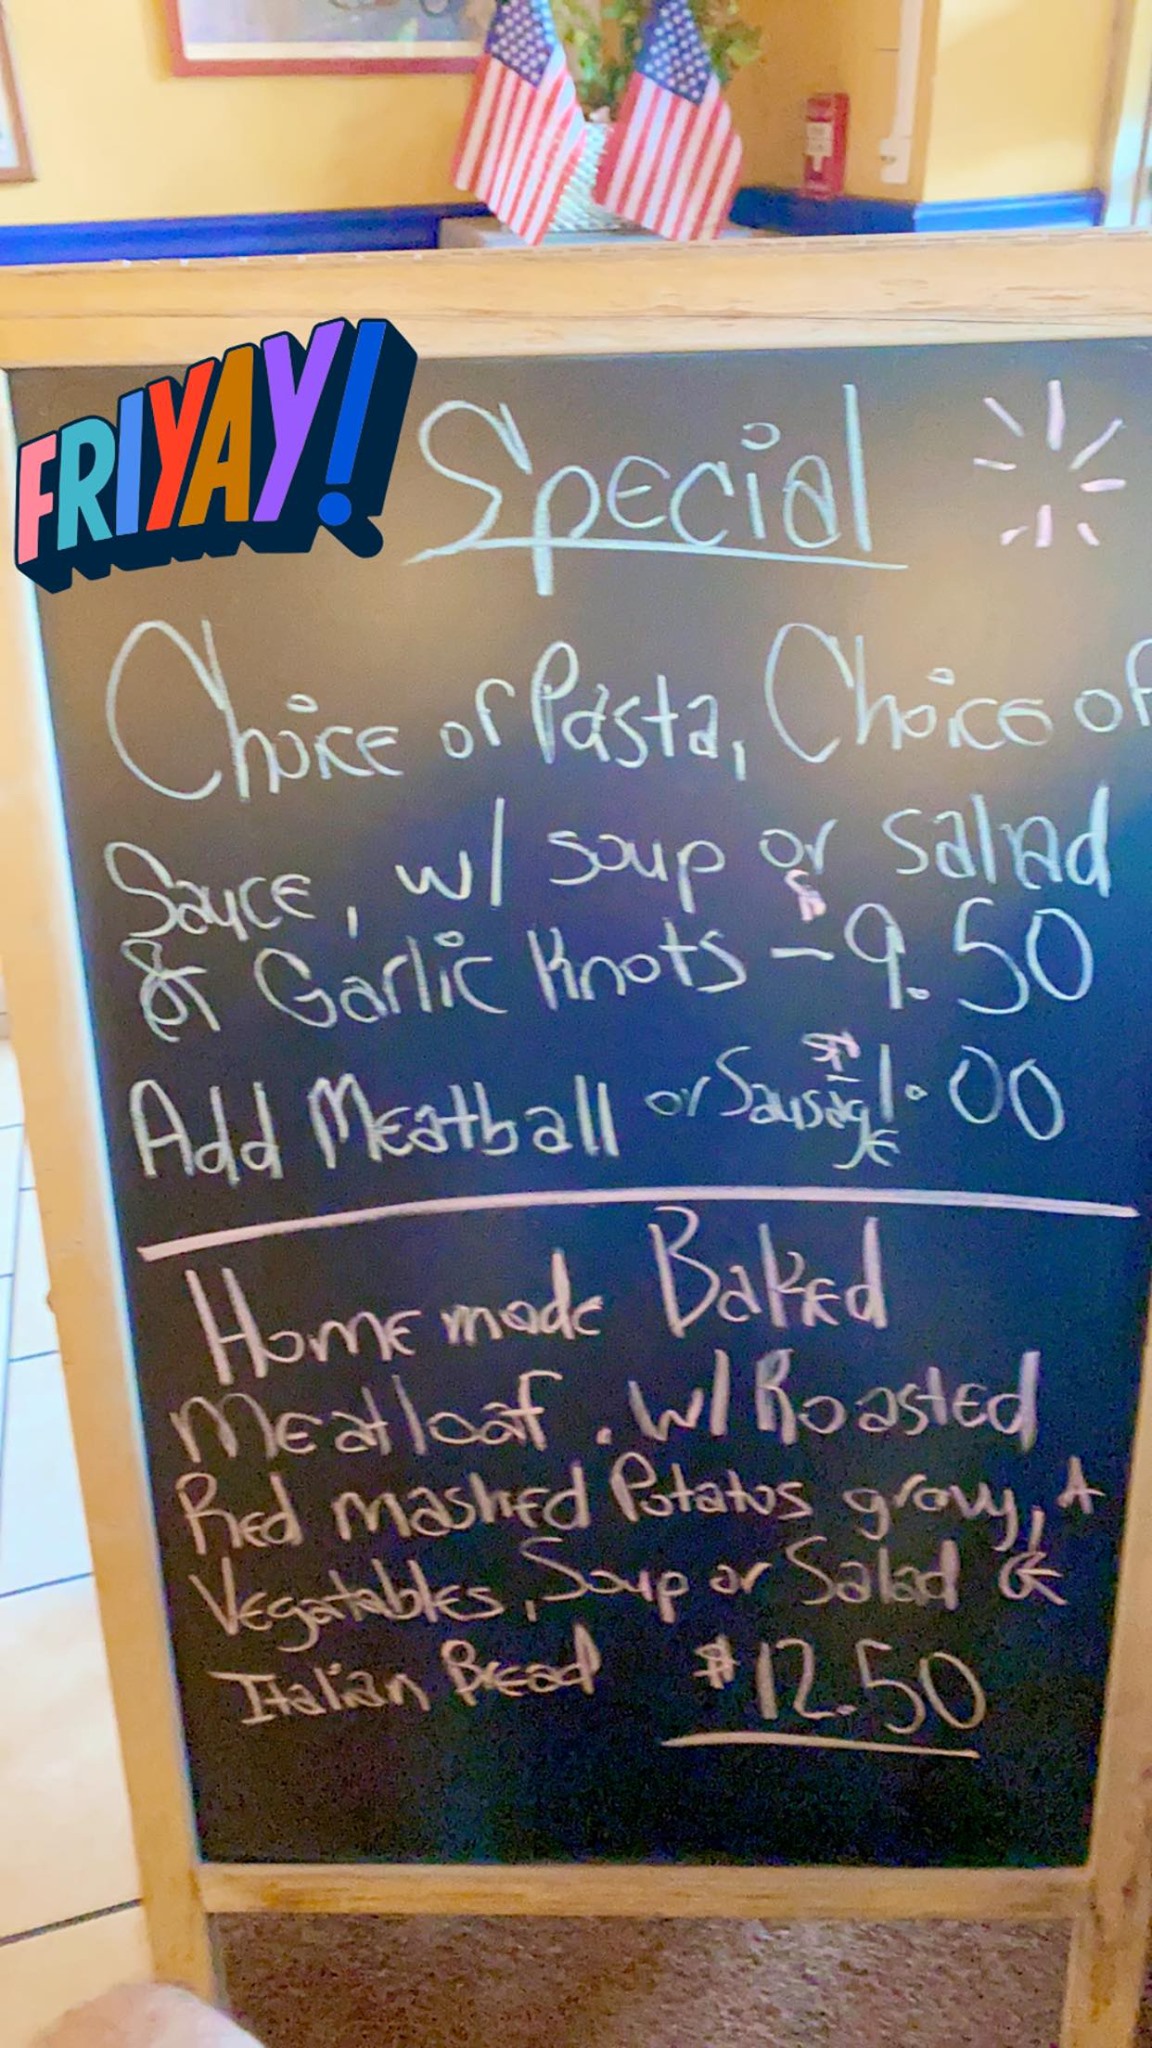 FRIYAY!
Special
Choice of Pasta, Choice of
Sauce, w/ soup or salad
& Garlic Knots - 9.50
Add Meatball or Sausage $1.00
Homemade Baked
Meatloaf. w/ Roasted
Red mashed Potatos gravy, +
Vegatables, Soup or Salad &
Italian Bread $12.50